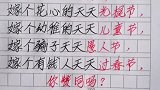 嫁个花心的天天光棍节,
嫁个幼稚的天天儿童节,
嫁个骗子天天愚人节,
嫁个有钱人天天过春节,
你赞同吗?